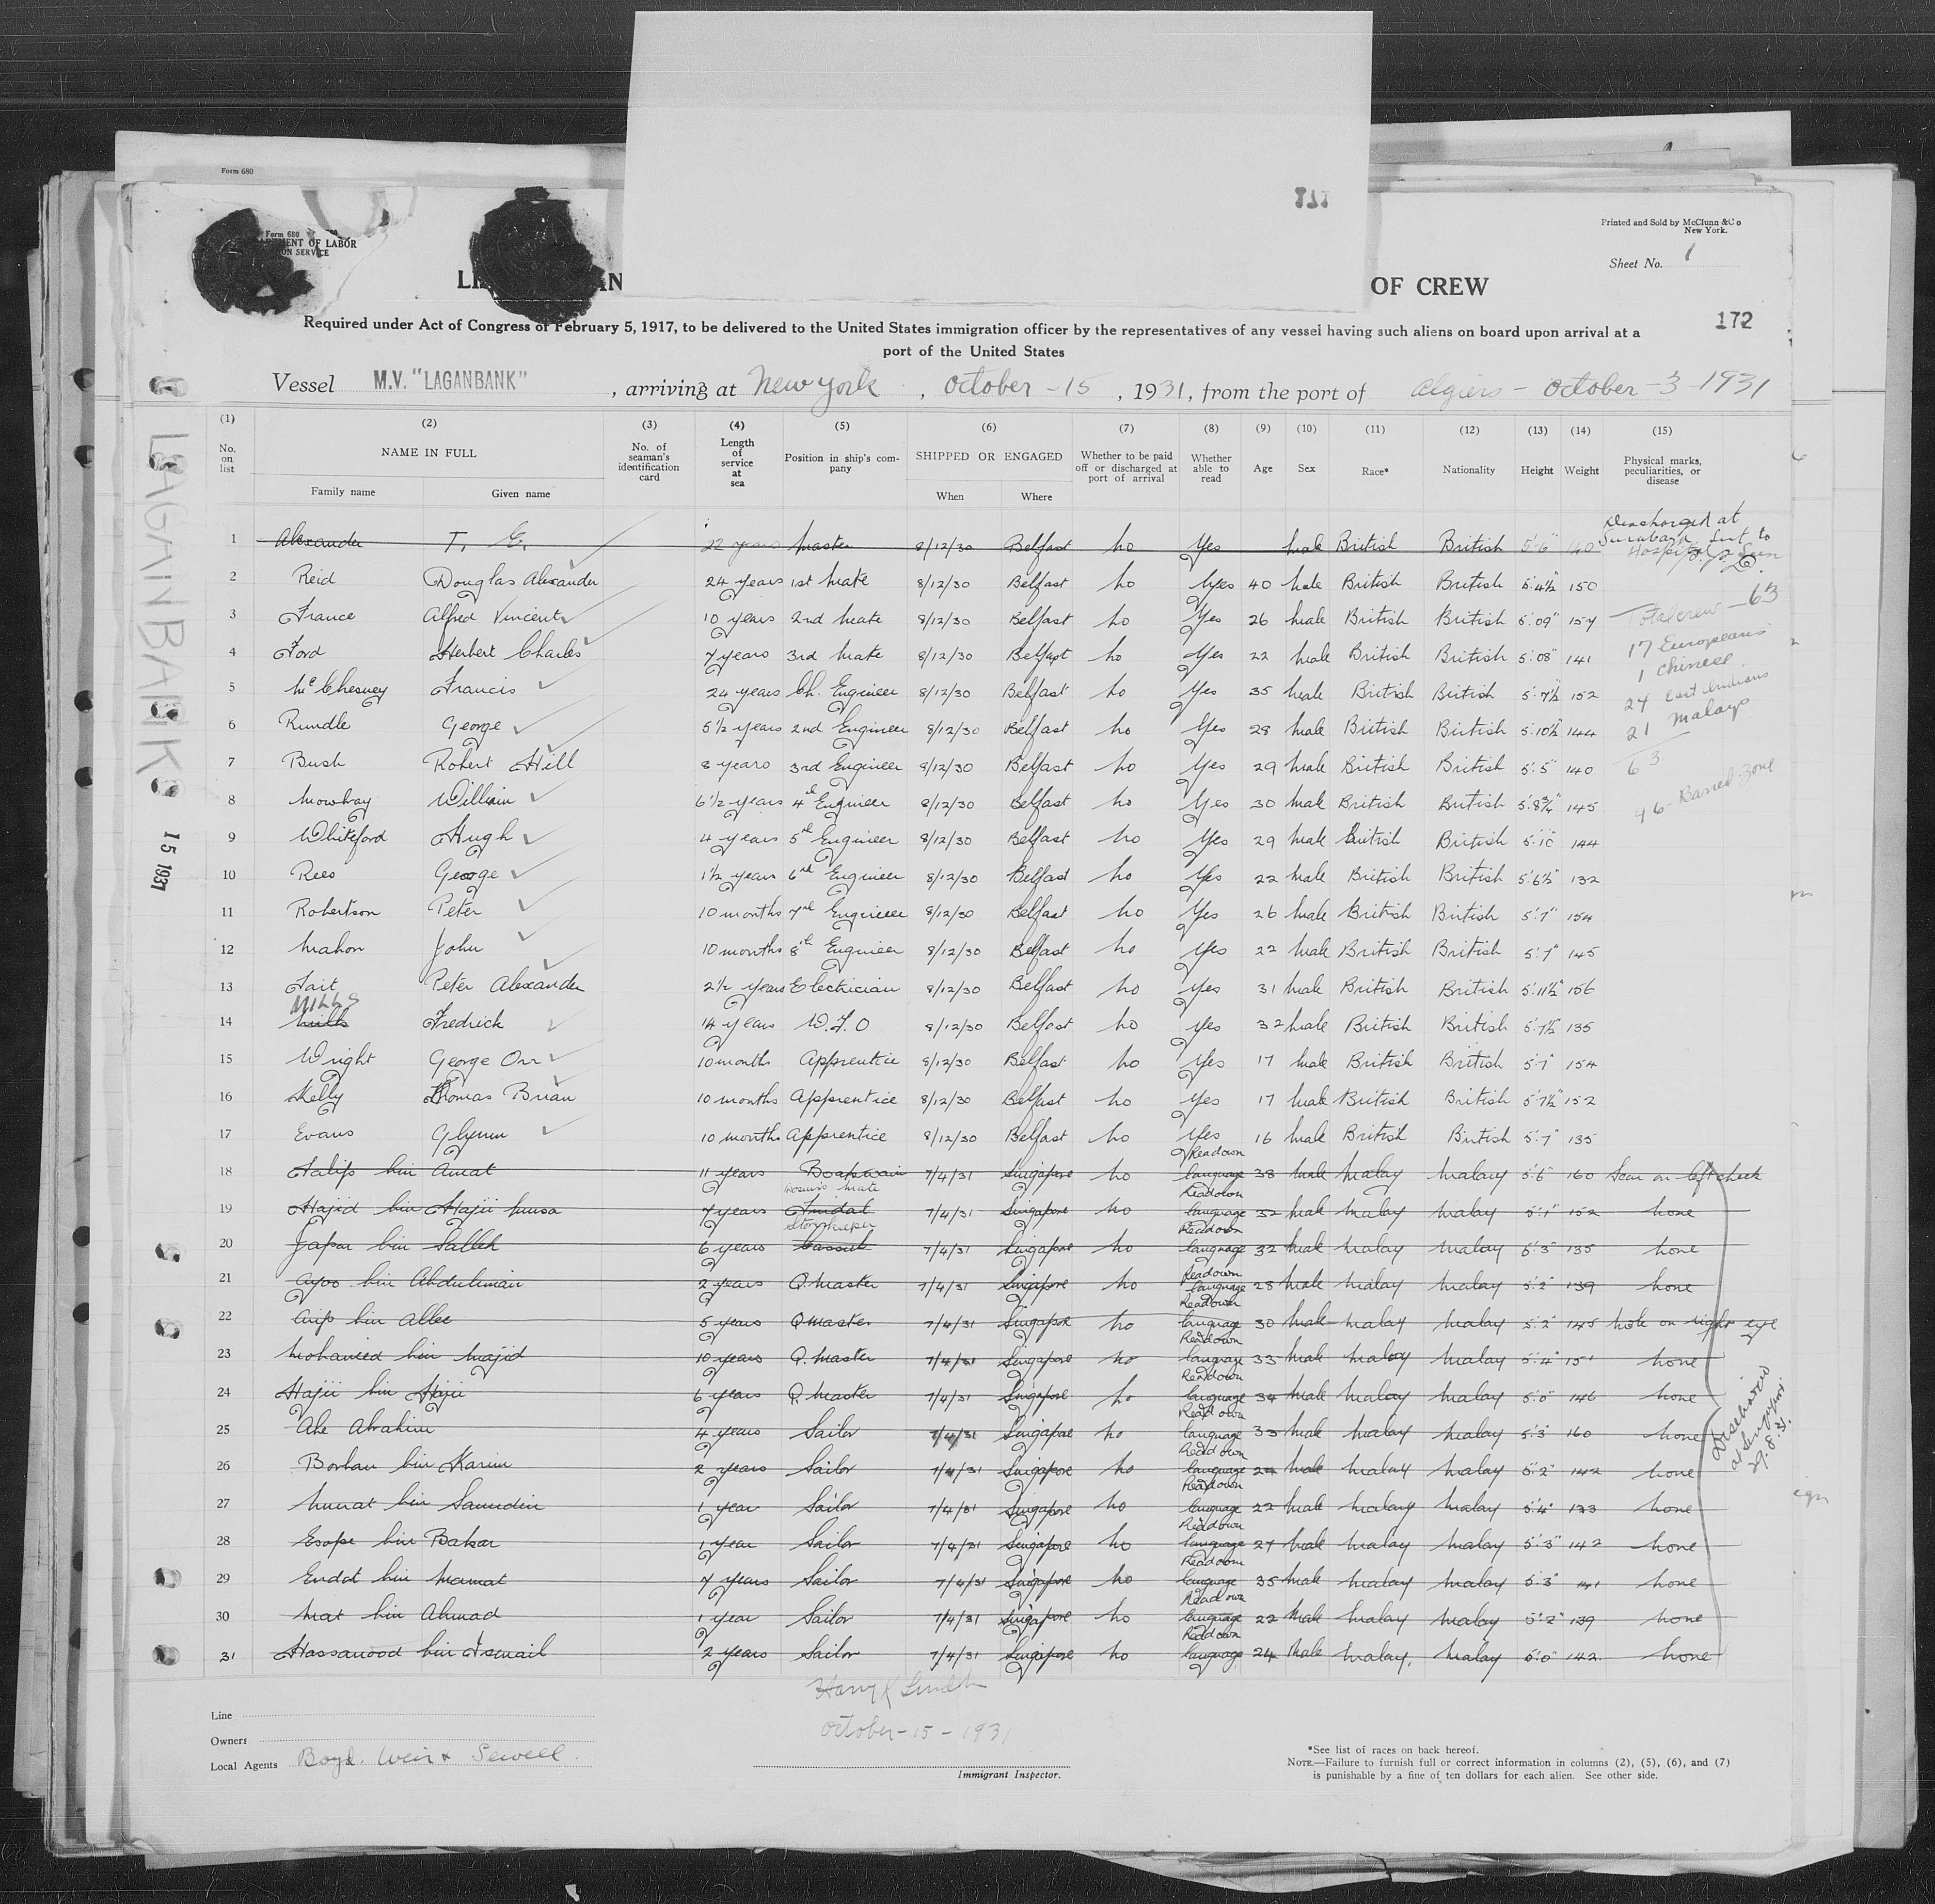 Form 680
717
Form 680
OF LABOR
ON SERVICE
Printed and Sold by McClunn & Co
New York.
Sheet No. 1
OF CREW
172
Required under Act of Congress of February 5, 1917, to be delivered to the United States immigration officer by the representatives of any vessel having such aliens on board upon arrival at a
port of the United States
Vessel M.V. "LAGANBANK", arriving at New York, October - 15, 1931, from the port of Algiers - October - 3 - 1931
LAGANBANK
15 1931
(1) (2) (3) (4) (5) (6) (7) (8) (9) (10) (11) (12) (13) (14) (15)
No. on list NAME IN FULL No. of seaman's identification card Length of service at sea Position in ship's company SHIPPED OR ENGAGED Whether to be paid off or discharged at port of arrival Whether able to read Age Sex Race* Nationality Height Weight Physical marks, peculiarities, or disease
Family name Given name When Where
1 Alexander T. E. 22 years Master 8/12/30 Belfast No Yes Male British British 5'6" 140 Discharged at Surabaya Sent to Hospital
2 Reid Douglas Alexander 24 years 1st Mate 8/12/30 Belfast No Yes 40 Male British British 5'4½ 150
3 France Alfred Vincent 10 years 2nd Mate 8/12/30 Belfast No Yes 26 Male British British 5'09" 154
4 Ford Herbert Charles 7 years 3rd Mate 8/12/30 Belfast No Yes 22 Male British British 5'08" 141
5 McChesney Francis 24 years Ch. Engineer 8/12/30 Belfast No Yes 35 Male British British 5'7½ 152
6 Rundle George 5½ years 2nd Engineer 8/12/30 Belfast No Yes 28 Male British British 5'10½ 144
7 Bush Robert Hill 8 years 3rd Engineer 8/12/30 Belfast No Yes 29 Male British British 5'5" 140
8 Mowbray William 6½ years 4th Engineer 8/12/30 Belfast No Yes 30 Male British British 5'8¾" 145
9 Whiteford Hugh 4 years 5th Engineer 8/12/30 Belfast No Yes 29 Male British British 5'10" 144
10 Rees George 1½ years 6th Engineer 8/12/30 Belfast No Yes 22 Male British British 5'6½" 132
11 Robertson Peter 10 months 7th Engineer 8/12/30 Belfast No Yes 26 Male British British 5'7" 154
12 Mahon John 10 months 8th Engineer 8/12/30 Belfast No Yes 22 Male British British 5'7" 145
13 Tait Peter Alexander 2½ years Electrician 8/12/30 Belfast No Yes 31 Male British British 5'11½" 156
MILLS
14 Mills Fredrick 14 years W.T.O 8/12/30 Belfast No Yes 32 Male British British 5'7½" 135
15 Wright George Orr 10 months Apprentice 8/12/30 Belfast No Yes 17 Male British British 5'7" 154
16 Skelly Thomas Brian 10 months Apprentice 8/12/30 Belfast No Yes 17 Male British British 5'7½" 152
17 Evans Glynn 10 months Apprentice 8/12/30 Belfast No Yes 16 Male British British 5'7" 135
18 Talip bin Amat 11 years Boatswain 7/4/31 Singapore No Read own language 38 Male Malay Malay 5'6" 160 Scar on left cheek
Bosun's Mate
19 Hajid bin Hajii Musa 7 years Tindal 7/4/31 Singapore No Read own language 32 Male Malay Malay 5'1" 152 None
Storekeeper
20 Japar bin Salleh 6 years Cassab 7/4/31 Singapore No Read own language 32 Male Malay Malay 5'3" 135 None
21 Ayoo bin Abduliman 2 years Q. Master 7/4/31 Singapore No Read own language 28 Male Malay Malay 5'2" 139 None
22 Arip bin Allee 5 years Q Master 7/4/31 Singapore No Read own language 30 Male Malay Malay 5'2" 145 Mole on right eye
23 Mohamed bin Majid 10 years Q. Master 7/4/31 Singapore No Read own language 33 Male Malay Malay 5'4" 151 None
24 Hajii bin Hajii 6 years Q Master 7/4/31 Singapore No Read own language 34 Male Malay Malay 5'0" 146 None
25 Ahe Abrahim 4 years Sailor 7/4/31 Singapore No Read own language 33 Male Malay Malay 5'3" 160 None
26 Borhan bin Karim 2 years Sailor 7/4/31 Singapore No Read own language 24 Male Malay Malay 5'2" 142 None
27 Munat bin Samudin 1 year Sailor 7/4/31 Singapore No Read own language 22 Male Malay Malay 5'4" 133 None
28 Esope bin Bakar 1 year Sailor 7/4/31 Singapore No Read own language 27 Male Malay Malay 5'3" 142 None
29 Endot bin Mamat 7 years Sailor 7/4/31 Singapore No Read own language 35 Male Malay Malay 5'3" 141 None
30 Mat bin Ahmad 1 year Sailor 7/4/31 Singapore No Read own language 22 Male Malay Malay 5'2" 139 None
31 Hassanood bin Ismail 2 years Sailor 7/4/31 Singapore No Read own language 24 Male Malay Malay 5'0" 142 None
Total crew - 63
17 Europeans
1 Chinese
24 East Indians
21 Malays
63
46 - Barred Zone
at Singapore
29.8.31.
Harry R Smith
October - 15 - 1931
Immigrant Inspector.
Line
Owners
Local Agents Boyd. Weir & Sewell.
*See list of races on back hereof.
NOTE.—Failure to furnish full or correct information in columns (2), (5), (6), and (7)
is punishable by a fine of ten dollars for each alien. See other side.